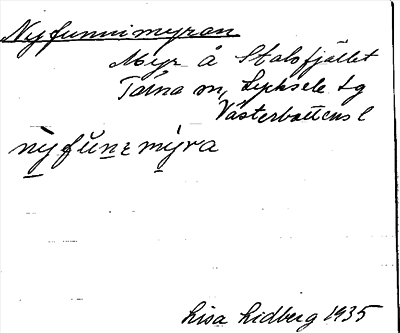 Nyfunnimyran
Myr å Stabsfjället
Tärna sn, Lycksele tg
Västerbottens l
nỳfŭnɛmýra
Lisa Lidberg 1935